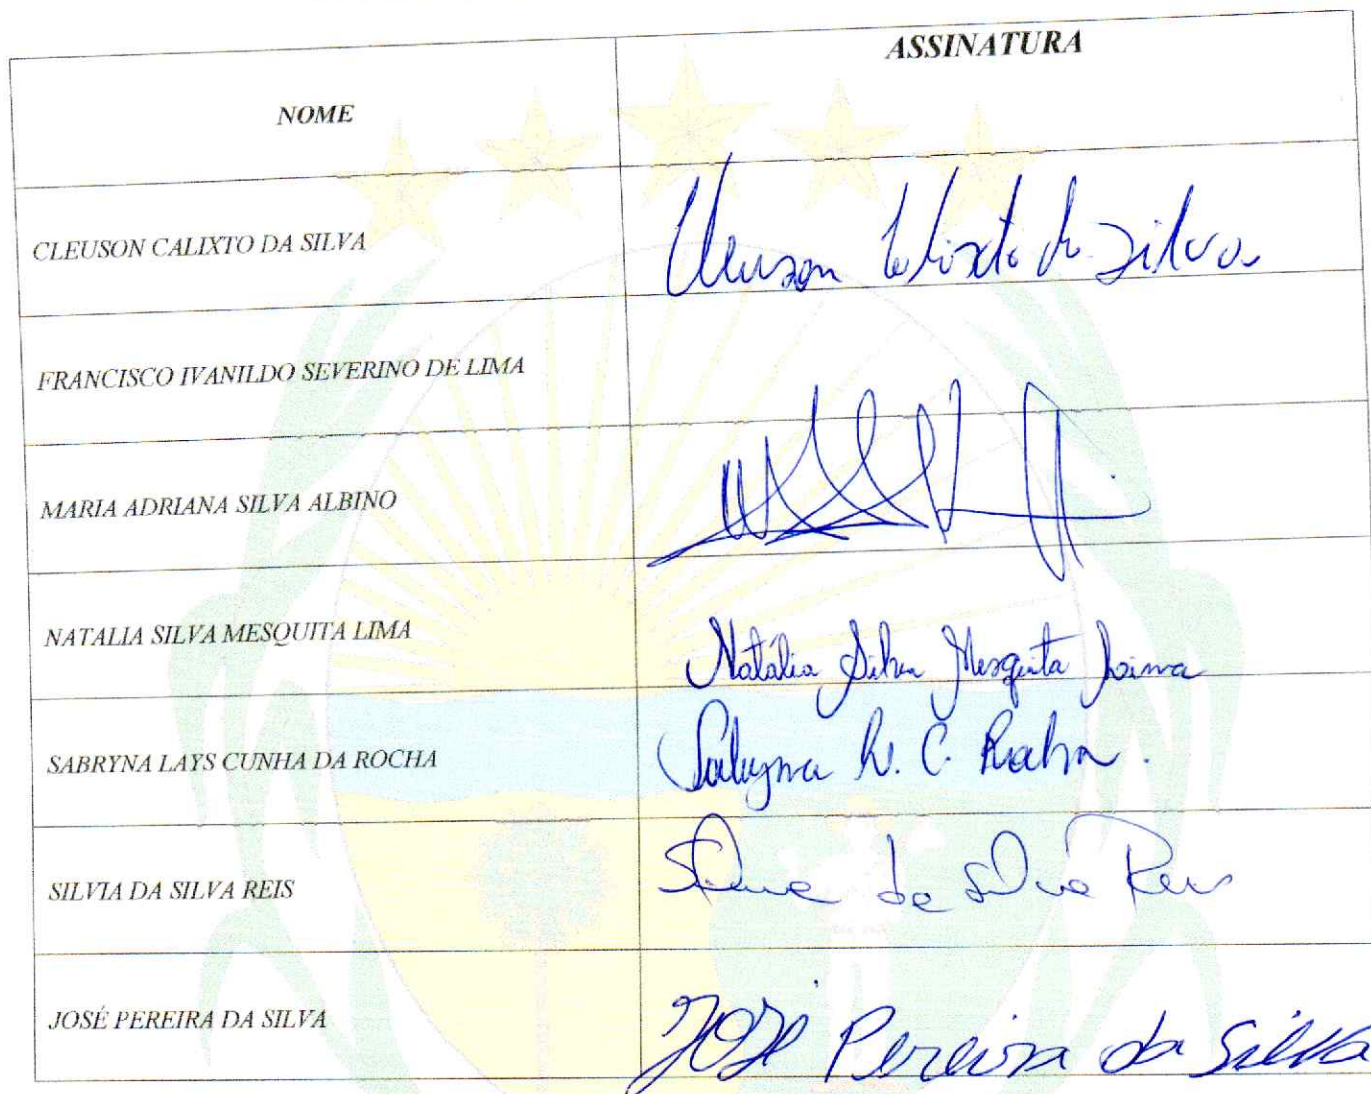 NOME ASSINATURA
CLEUSON CALIXTO DA SILVA Cleuson Calixto da Silva
FRANCISCO IVANILDO SEVERINO DE LIMA
MARIA ADRIANA SILVA ALBINO
NATALIA SILVA MESQUITA LIMA Natália Silva Mesquita Lima
SABRYNA LAYS CUNHA DA ROCHA Sabryna L. C. Rocha.
SILVIA DA SILVA REIS Silvia da Silva Reis
JOSÉ PEREIRA DA SILVA José Pereira da Silva